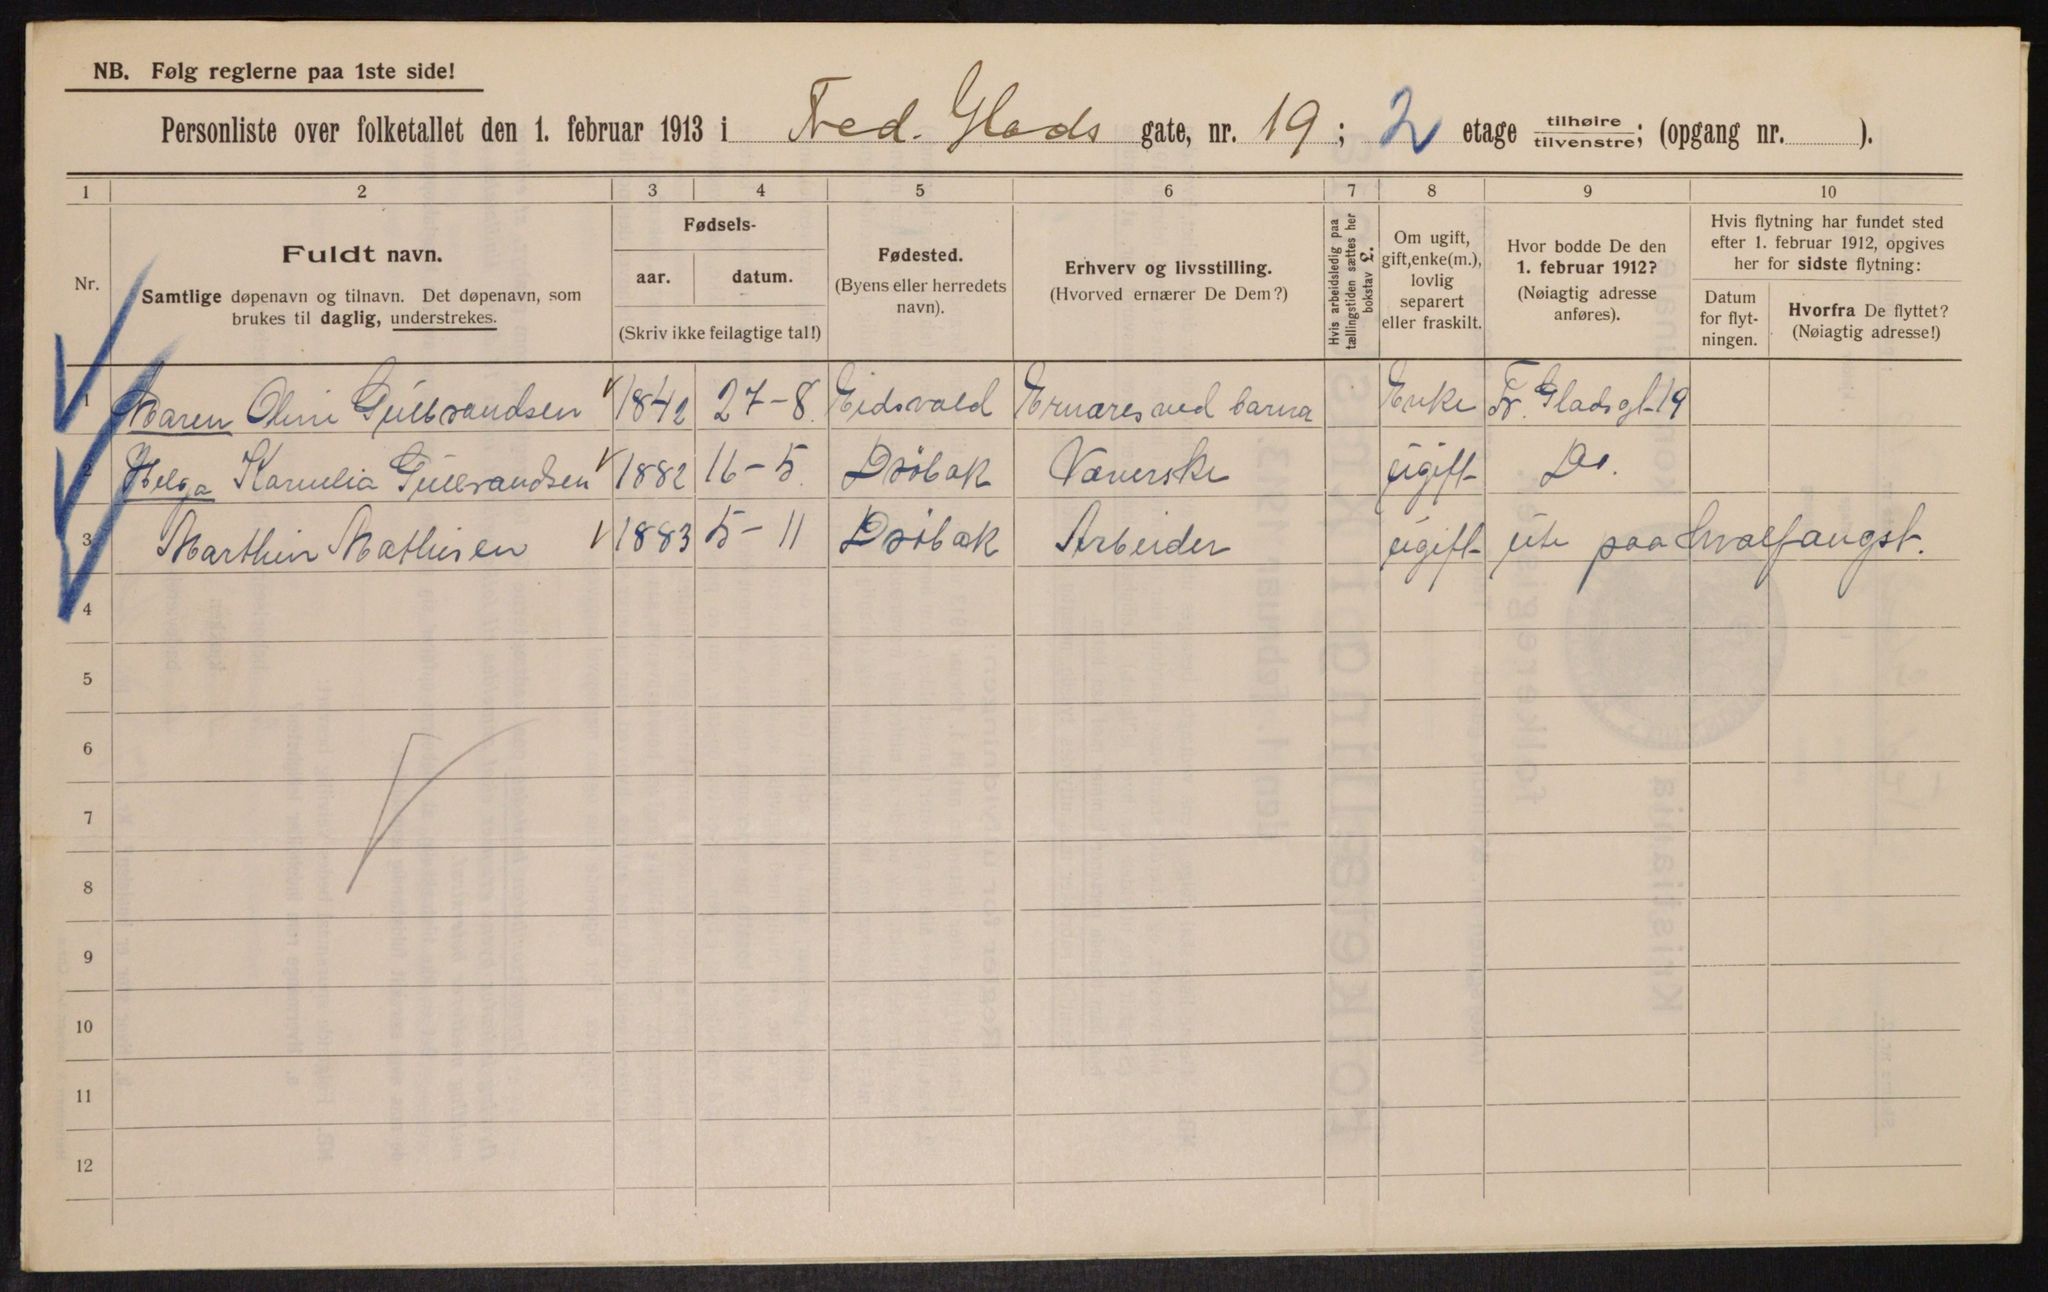 NB. Følg reglerne paa 1ste side!
Personliste over folketallet den 1. februar 1913 i Fred. Glads gate, nr. 19; 2 etage tilhøire tilvenstre; (opgang nr. ).
1 2 3 4 5 6 7 8 9 10
Nr.
Fuldt navn.
Samtlige døpenavn og tilnavn. Det døpenavn, som
brukes til daglig, understrekes.
Fødsels-
aar. datum.
(Skriv ikke feilagtige tal!)
Fødested.
(Byens eller herredets
navn).
Erhverv og livsstilling.
(Hvorved ernærer De Dem?)
Hvis arbeidsledig paa
tællingstiden sættes her
bokstav £.
Om ugift,
gift, enke(m.),
lovlig
separert
eller fraskilt.
Hvor bodde De den
1. februar 1912?
(Nøiagtig adresse
anføres).
Hvis flytning har fundet sted
efter 1. februar 1912, opgives
her for sidste flytning:
Datum
for flyt-
ningen.
Hvorfra De flyttet?
(Nøiagtig adresse!)
1 Maren Oline Gulbrandsen 1842 27-8. Eidsvold Ernæres ved barna Enke Fr. Gladsgt. 19
2 Helga Kornelia Gulbrandsen 1882 16-5. Drøbak Væverske ugift Do.
3 Marthin Mathisen 1883 5-11 Drøbak Arbeider ugift ute paa hvalfangst.
4
5
6
7
8
9
10
11
12